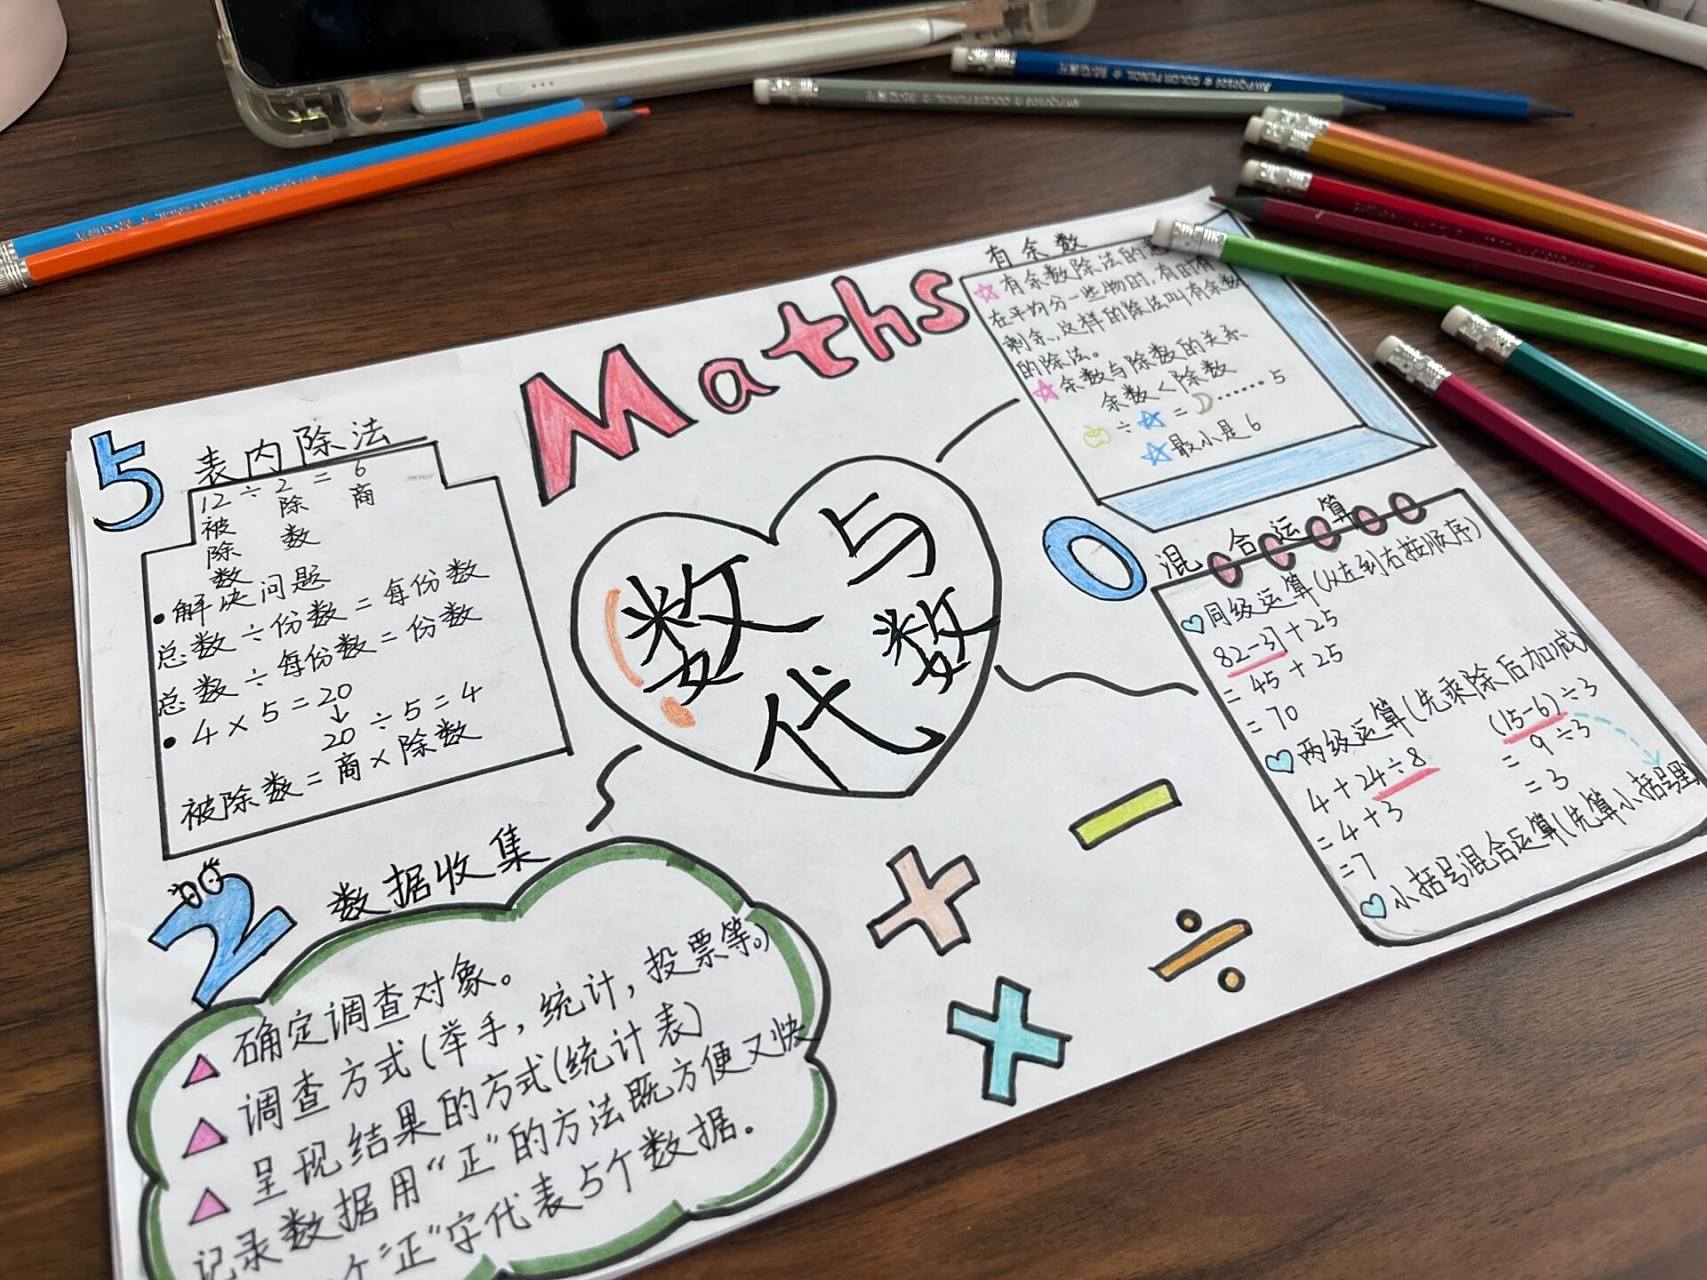 Maths
数与
代数
5
表内除法
12÷2=6
被 除 商
除 数
数
•解决问题
总数÷份数=每份数
总数÷每份数=份数
•4×5=20
↓
20÷5=4
被除数=商×除数
有余数
☆有余数除法的
在平均分一些物时,有时有
剩余,这样的除法叫有余数
的除法。
☆余数与除数的关系
余数<除数
÷☆=☽……5
☆最小是6
0
混合运算
♡同级运算(从左到右按顺序)
82-37+25
=45+25
=70
♡两级运算(先乘除后加减)
4+24÷8
=4+3
=7
(15-6)÷3
=9÷3
=3
♡小括号混合运算(先算小括号里
2
数据收集
▲确定调查对象。
▲调查方式(举手,统计,投票等。)
▲呈现结果的方式(统计表)
记录数据用“正”的方法既方便又快
个“正”字代表5个数据.
+
−
×
÷
COLOR PENCIL